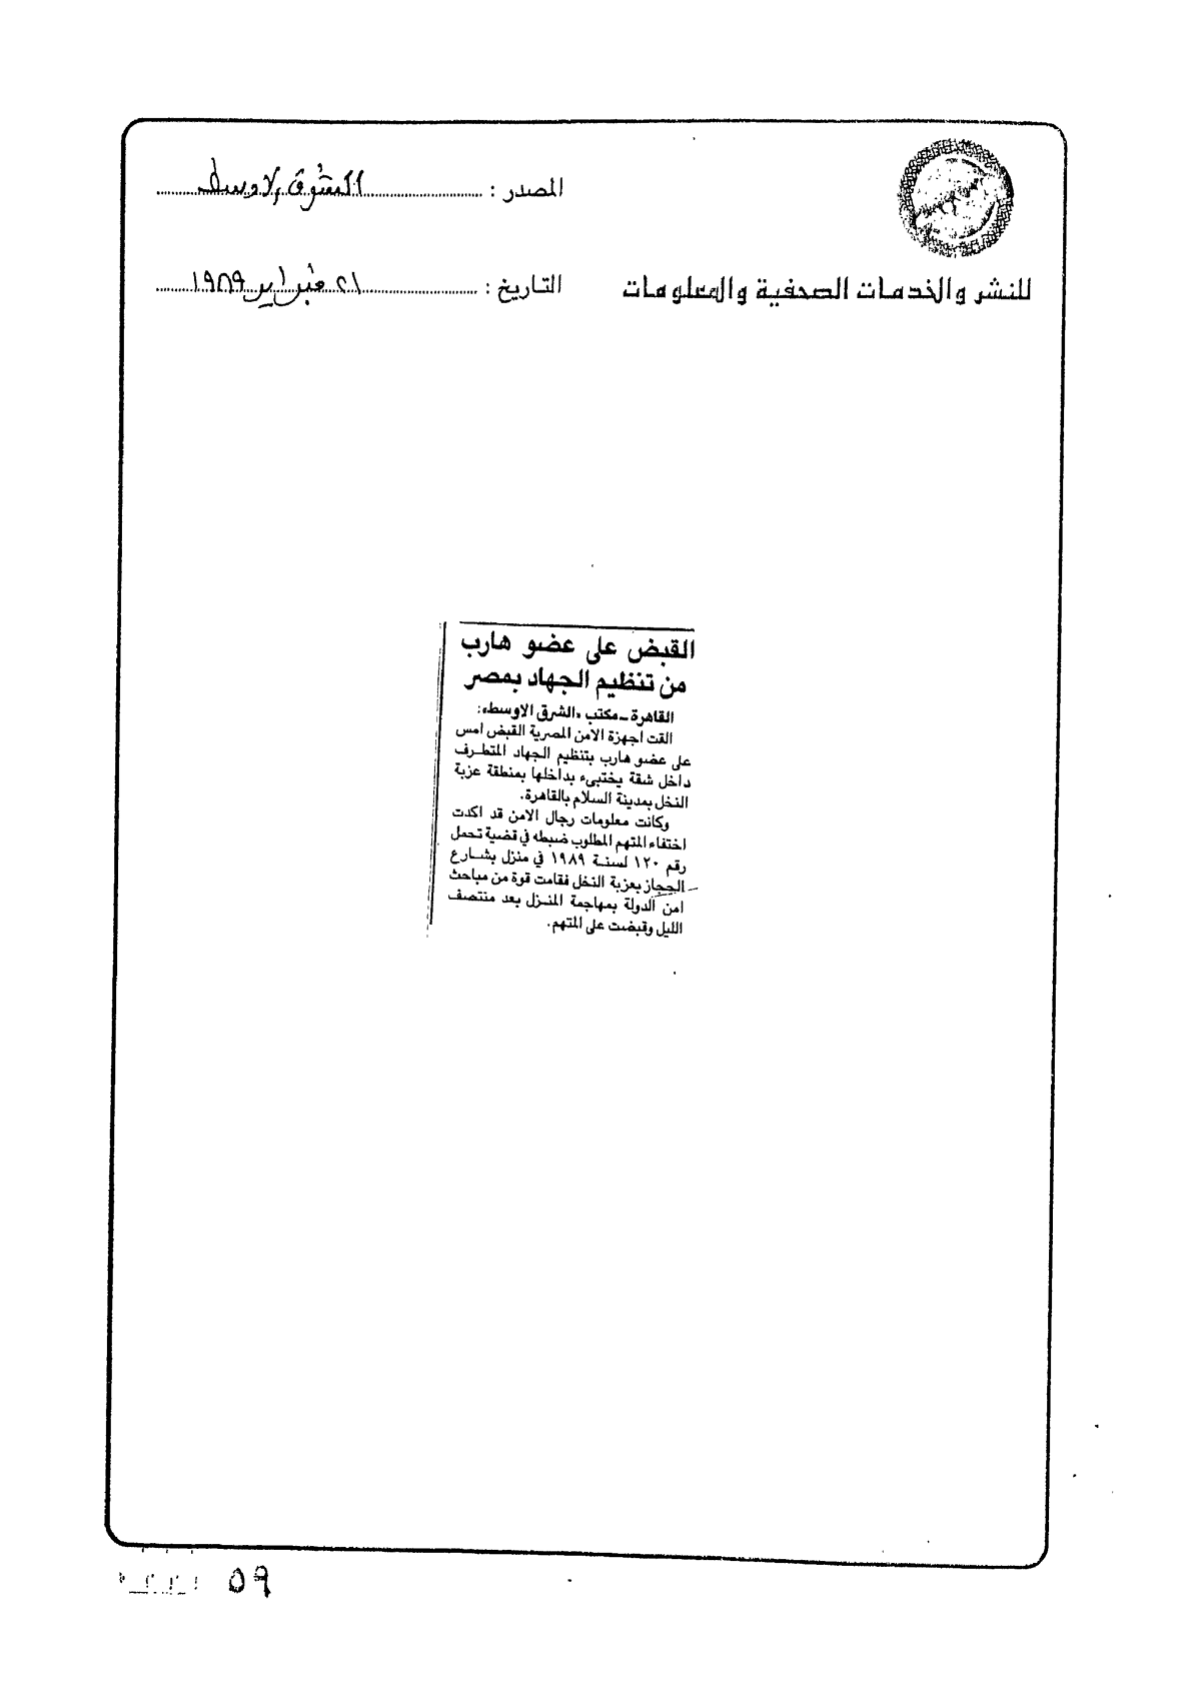 المصدر : الشرق الاوسط
للنشر والخدمات الصحفية والمعلومات
التاريخ : ٢١ فبراير ١٩٨٩
القبض على عضو هارب
من تنظيم الجهاد بمصر
القاهرة ـ مكتب «الشرق الاوسط»:
القت اجهزة الامن المصرية القبض امس
على عضو هارب بتنظيم الجهاد المتطرف
داخل شقة يختبىء بداخلها بمنطقة عزبة
النخل بمدينة السلام بالقاهرة.
وكانت معلومات رجال الامن قد اكدت
اختفاء المتهم المطلوب ضبطه في قضية تحمل
رقم ١٢٠ لسنة ١٩٨٩ في منزل بشارع
الحجاز بعزبة النخل فقامت قوة من مباحث
امن الدولة بمهاجمة المنزل بعد منتصف
الليل وقبضت على المتهم.
٥٩